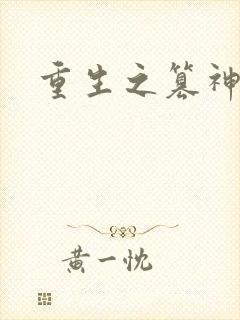 重生之篡神
黄一忱